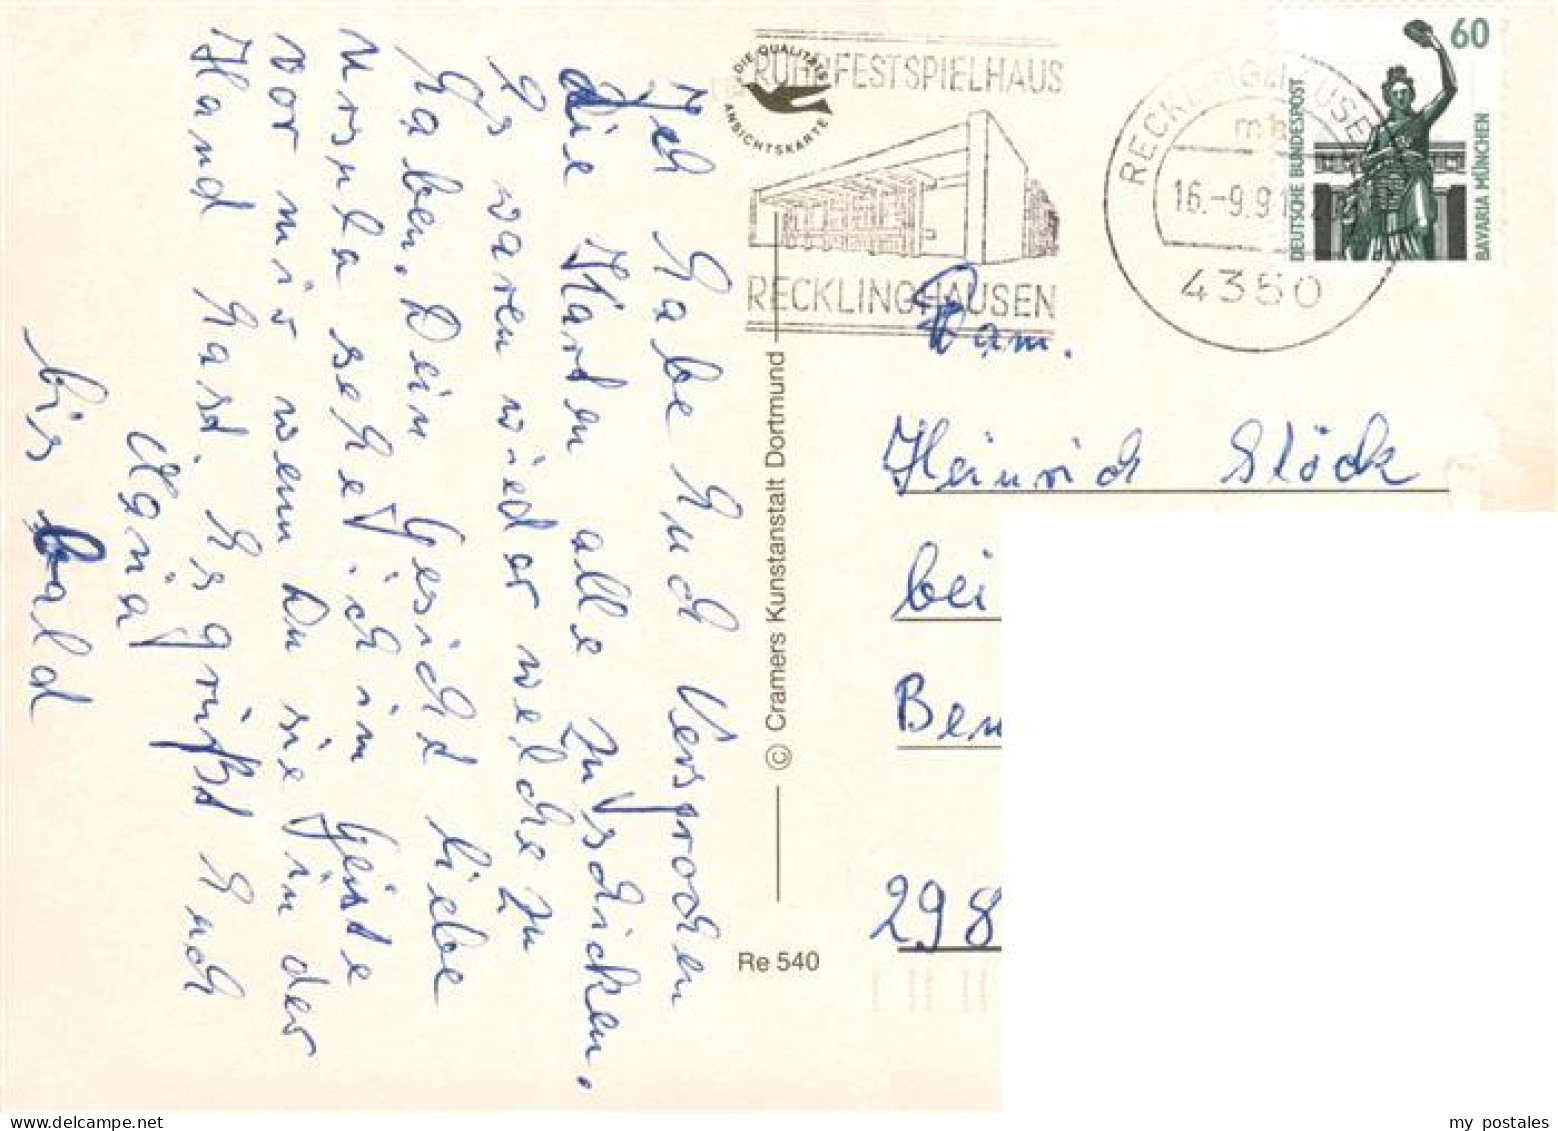 Ich habe Euch Versprochen
die Karten alle Zu schicken.
Es waren wieder welche zu
haben. Dein Gesicht liebe
Ursula sehe ich im Geiste
vor mir wenn Du sie in der
Hand hast. Es grüßt Euch
Maria
bis bald
DIE QUALITÄTS
ANSICHTSKARTE
RUHRFESTSPIELHAUS
RECKLINGHAUSEN
RECKLINGHAUSEN
16.-9.91
4350
60
DEUTSCHE BUNDESPOST
BAVARIA MÜNCHEN
Fam.
Heinrich Glöck
bei
298
© Cramers Kunstanstalt Dortmund
Re 540
my postales